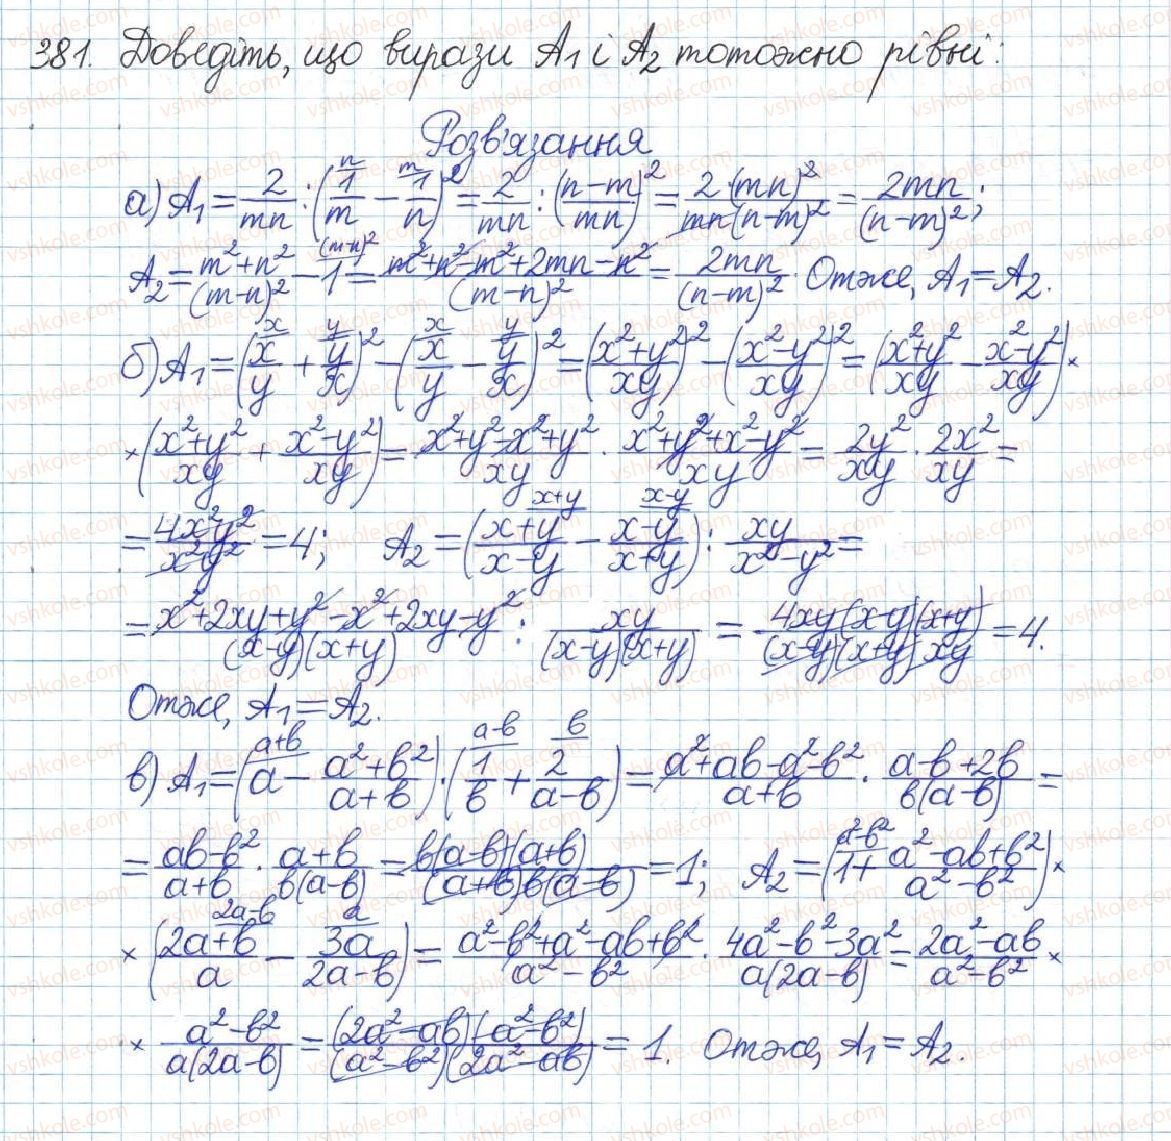 381. Доведіть, що вирази A₁ і A₂ тотожно рівні:
Розв'язання
а) A₁ = 2/mn : (1/m - 1/n)² = 2/mn : ((n-m)/mn)² = 2·(mn)²/(mn(n-m)²) = 2mn/(n-m)²;
A₂ = (m²+n²)/(m-n)² - 1 = (m²+n²-m²+2mn-n²)/(m-n)² = 2mn/(n-m)². Отже, A₁=A₂.
б) A₁ = (x/y + y/x)² - (x/y - y/x)² = ((x²+y²)/xy)² - ((x²-y²)/xy)² = ((x²+y²)/xy - (x²-y²)/xy) ×
× ((x²+y²)/xy + (x²-y²)/xy) = (x²+y²-x²+y²)/xy · (x²+y²+x²-y²)/xy = 2y²/xy · 2x²/xy =
= 4x²y²/x²y² = 4; A₂ = ((x+y)/(x-y) - (x-y)/(x+y)) : xy/(x²-y²) =
= (x²+2xy+y²-x²+2xy-y²)/((x-y)(x+y)) : xy/((x-y)(x+y)) = 4xy(x-y)(x+y)/((x-y)(x+y)xy) = 4.
Отже, A₁=A₂.
в) A₁ = (a - (a²+b²)/(a+b)) : (1/b + 2/(a-b)) = (a²+ab-a²-b²)/(a+b) · (a-b+2b)/(b(a-b)) =
= (ab-b²)/(a+b) · (a+b)/(b(a-b)) = b(a-b)(a+b)/((a+b)b(a-b)) = 1; A₂ = (1 + (a²-ab+b²)/(a²-b²)) ×
× ((2a+b)/a - 3a/(2a-b)) = (a²-b²+a²-ab+b²)/(a²-b²) · (4a²-b²-3a²)/(a(2a-b)) = (2a²-ab)/(a²-b²) ×
× (a²-b²)/(a(2a-b)) = (2a²-ab)(a²-b²)/((a²-b²)(2a²-ab)) = 1. Отже, A₁=A₂.